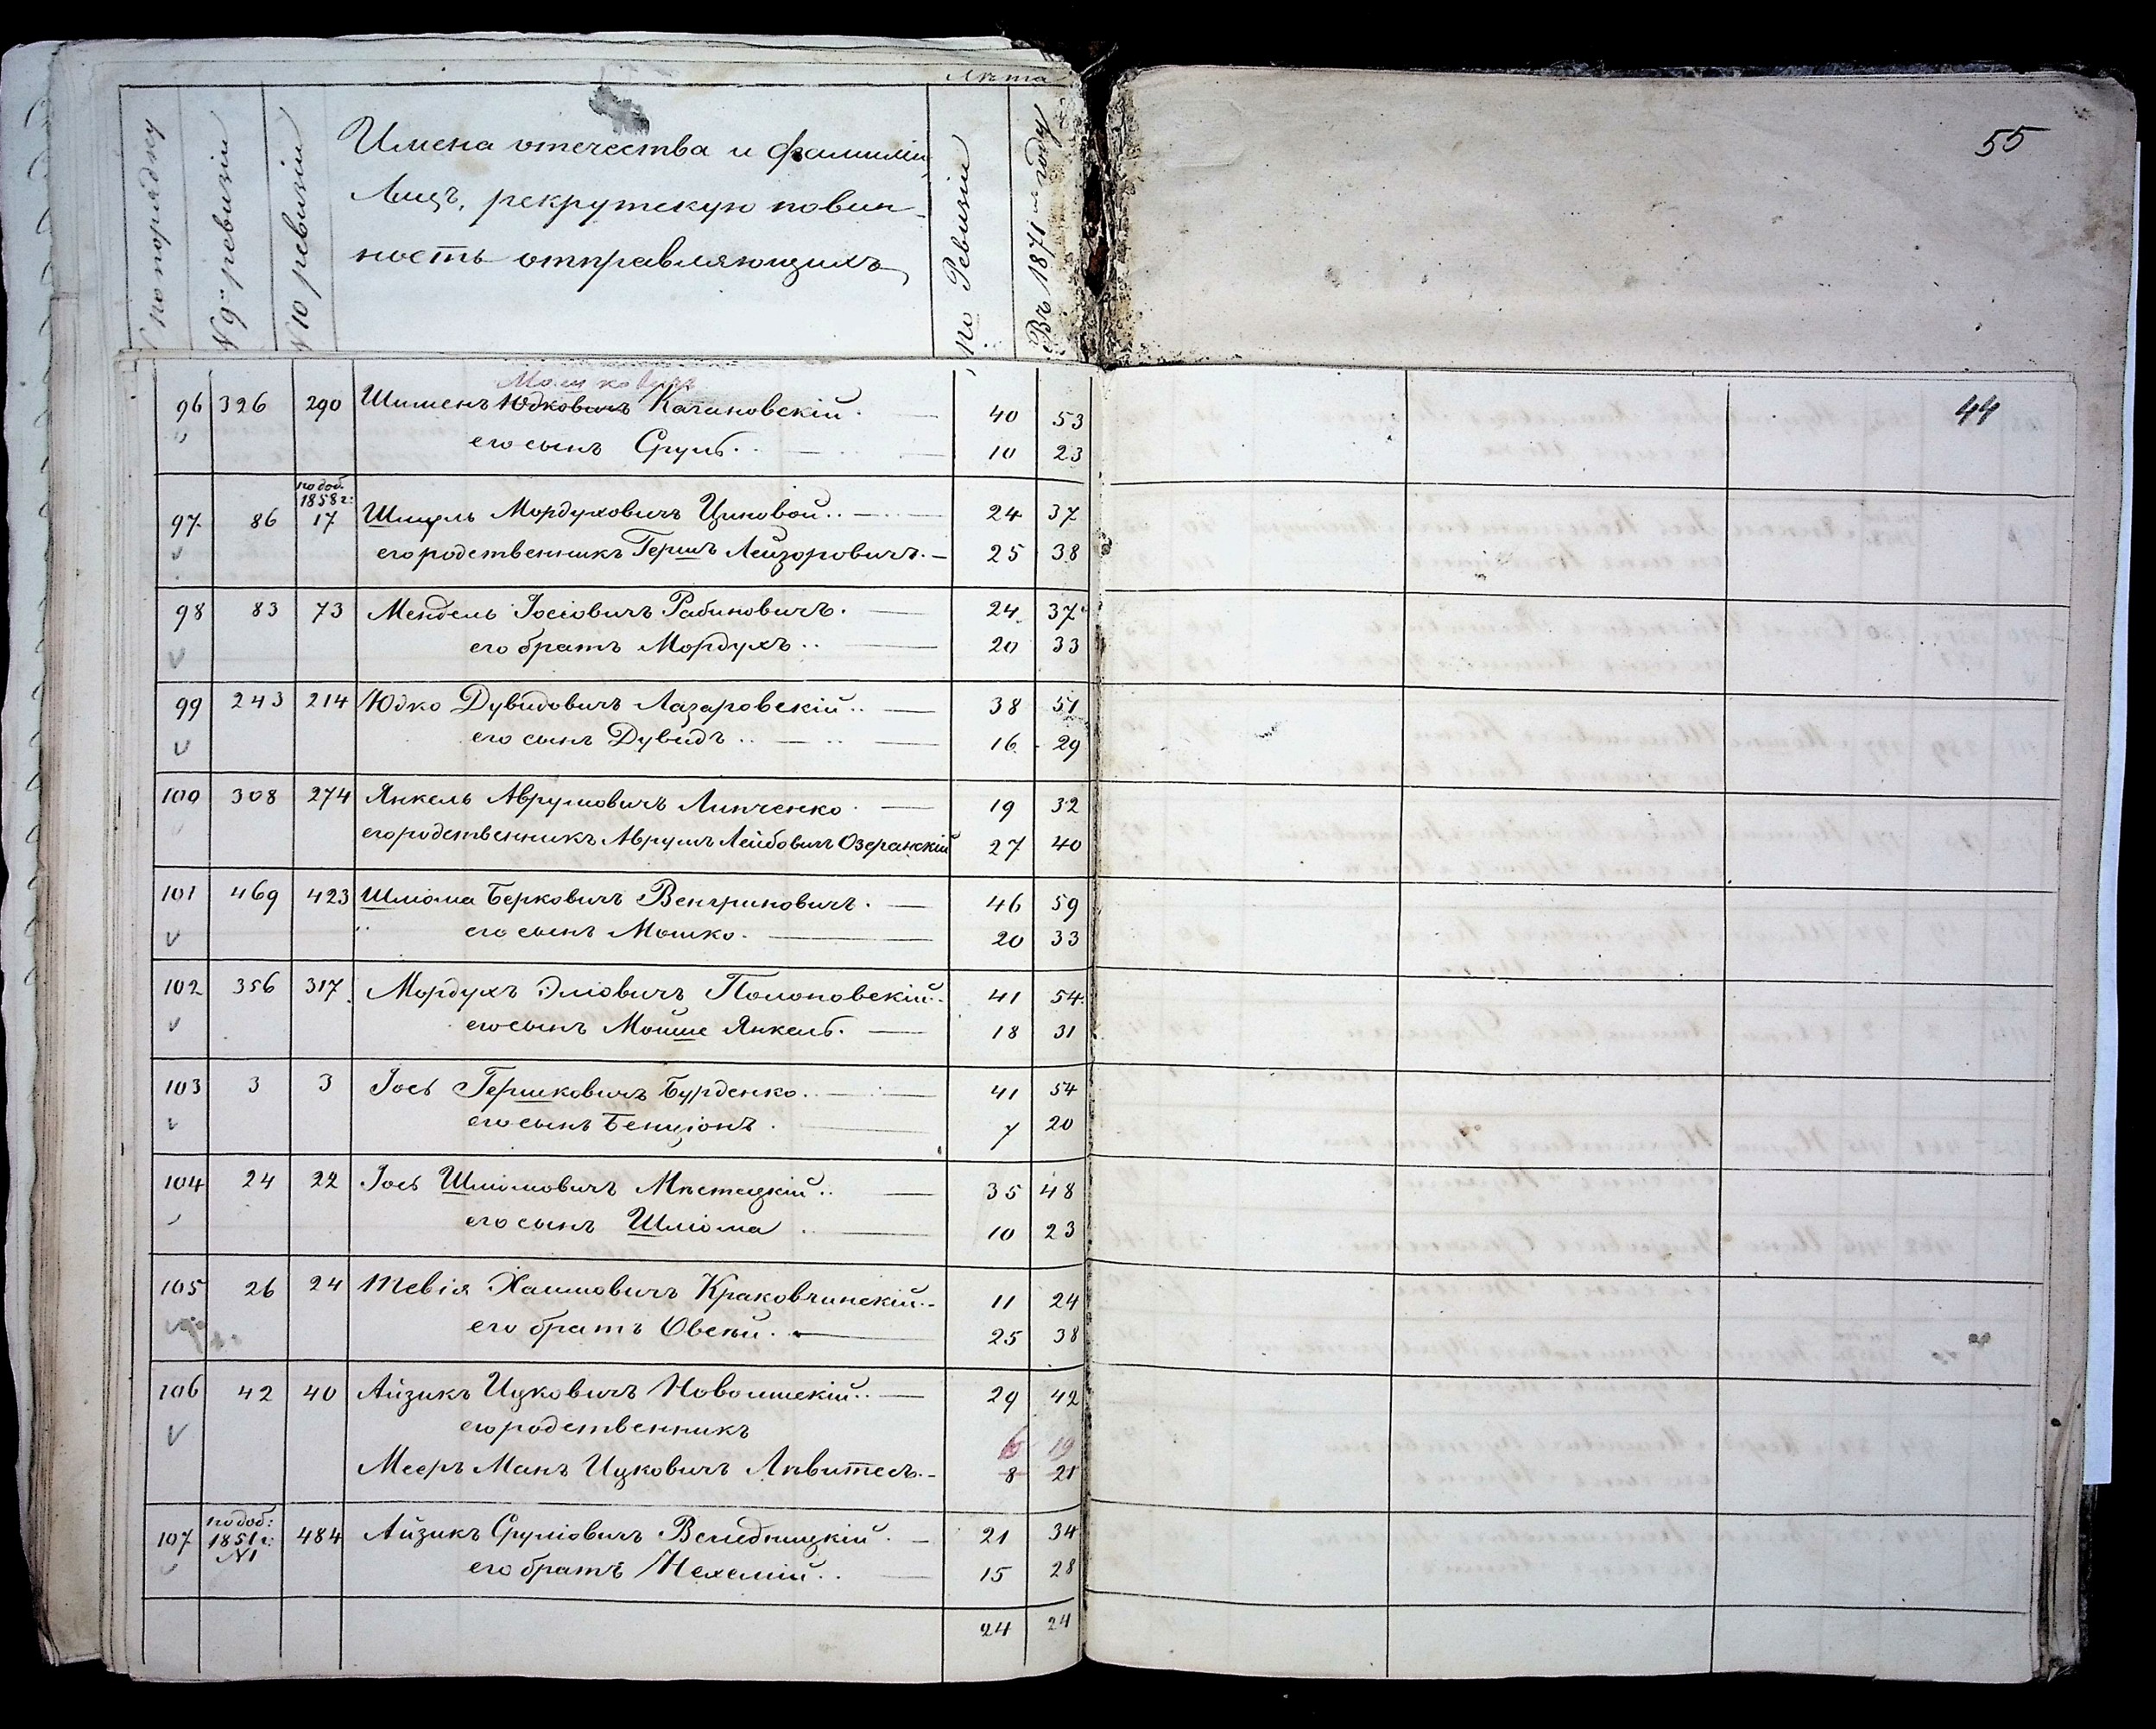 Лѣта
№ по порядку
№ 9й ревизіи
№ 10 ревизіи
Имена отечества и фамиліи
Лицъ, рекрутскую повин-
ность отправляющихъ
по Ревизіи
Въ 1871м году
55
44
Мошковичъ
96 326 290 Шименъ Юдковичъ Качановскій. 40 53
его сынъ Сруль. 10 23
по доб. 1858 г:
97 86 17 Шмуль Мордуховичъ Циновой. 24 37
его родственникъ Гершъ Лейзоровичъ. 25 38
98 83 73 Мендель Іосіовичъ Рабиновичъ. 24 37
его братъ Мордухъ. 20 33
99 243 214 Юдко Дувидовичъ Лазаровскій. 38 51
его сынъ Дувидъ. 16 29
100 308 274 Янкель Аврумовичъ Липченко. 19 32
его родственникъ Аврумъ Лейбовичъ Озеранскій 27 40
101 469 423 Шліома Берковичъ Венгриновичъ. 46 59
его сынъ Мошко. 20 33
102 356 317 Мордухъ Эліовичъ Полоновскій. 41 54
его сынъ Мойше Янкель. 18 31
103 3 3 Іось Гершковичъ Бурденко. 41 54
его сынъ Бенціонъ. 7 20
104 24 22 Іось Шліомовичъ Мѣстецкій. 35 48
его сынъ Шліома. 10 23
105 26 24 Тевія Хаимовичъ Краковчинскій. 11 24
его братъ Овсѣй. 25 38
106 42 40 Айзикъ Ицковичъ 29 42
его родственникъ 6 19
Мееръ Манъ Ицковичъ Лѣвитесъ. 8 21
по доб: 1851 г: №1
107 484 Айзикъ Сруліовичъ Веледницкій. 21 34
его братъ Нехемій. 15 28
24 24